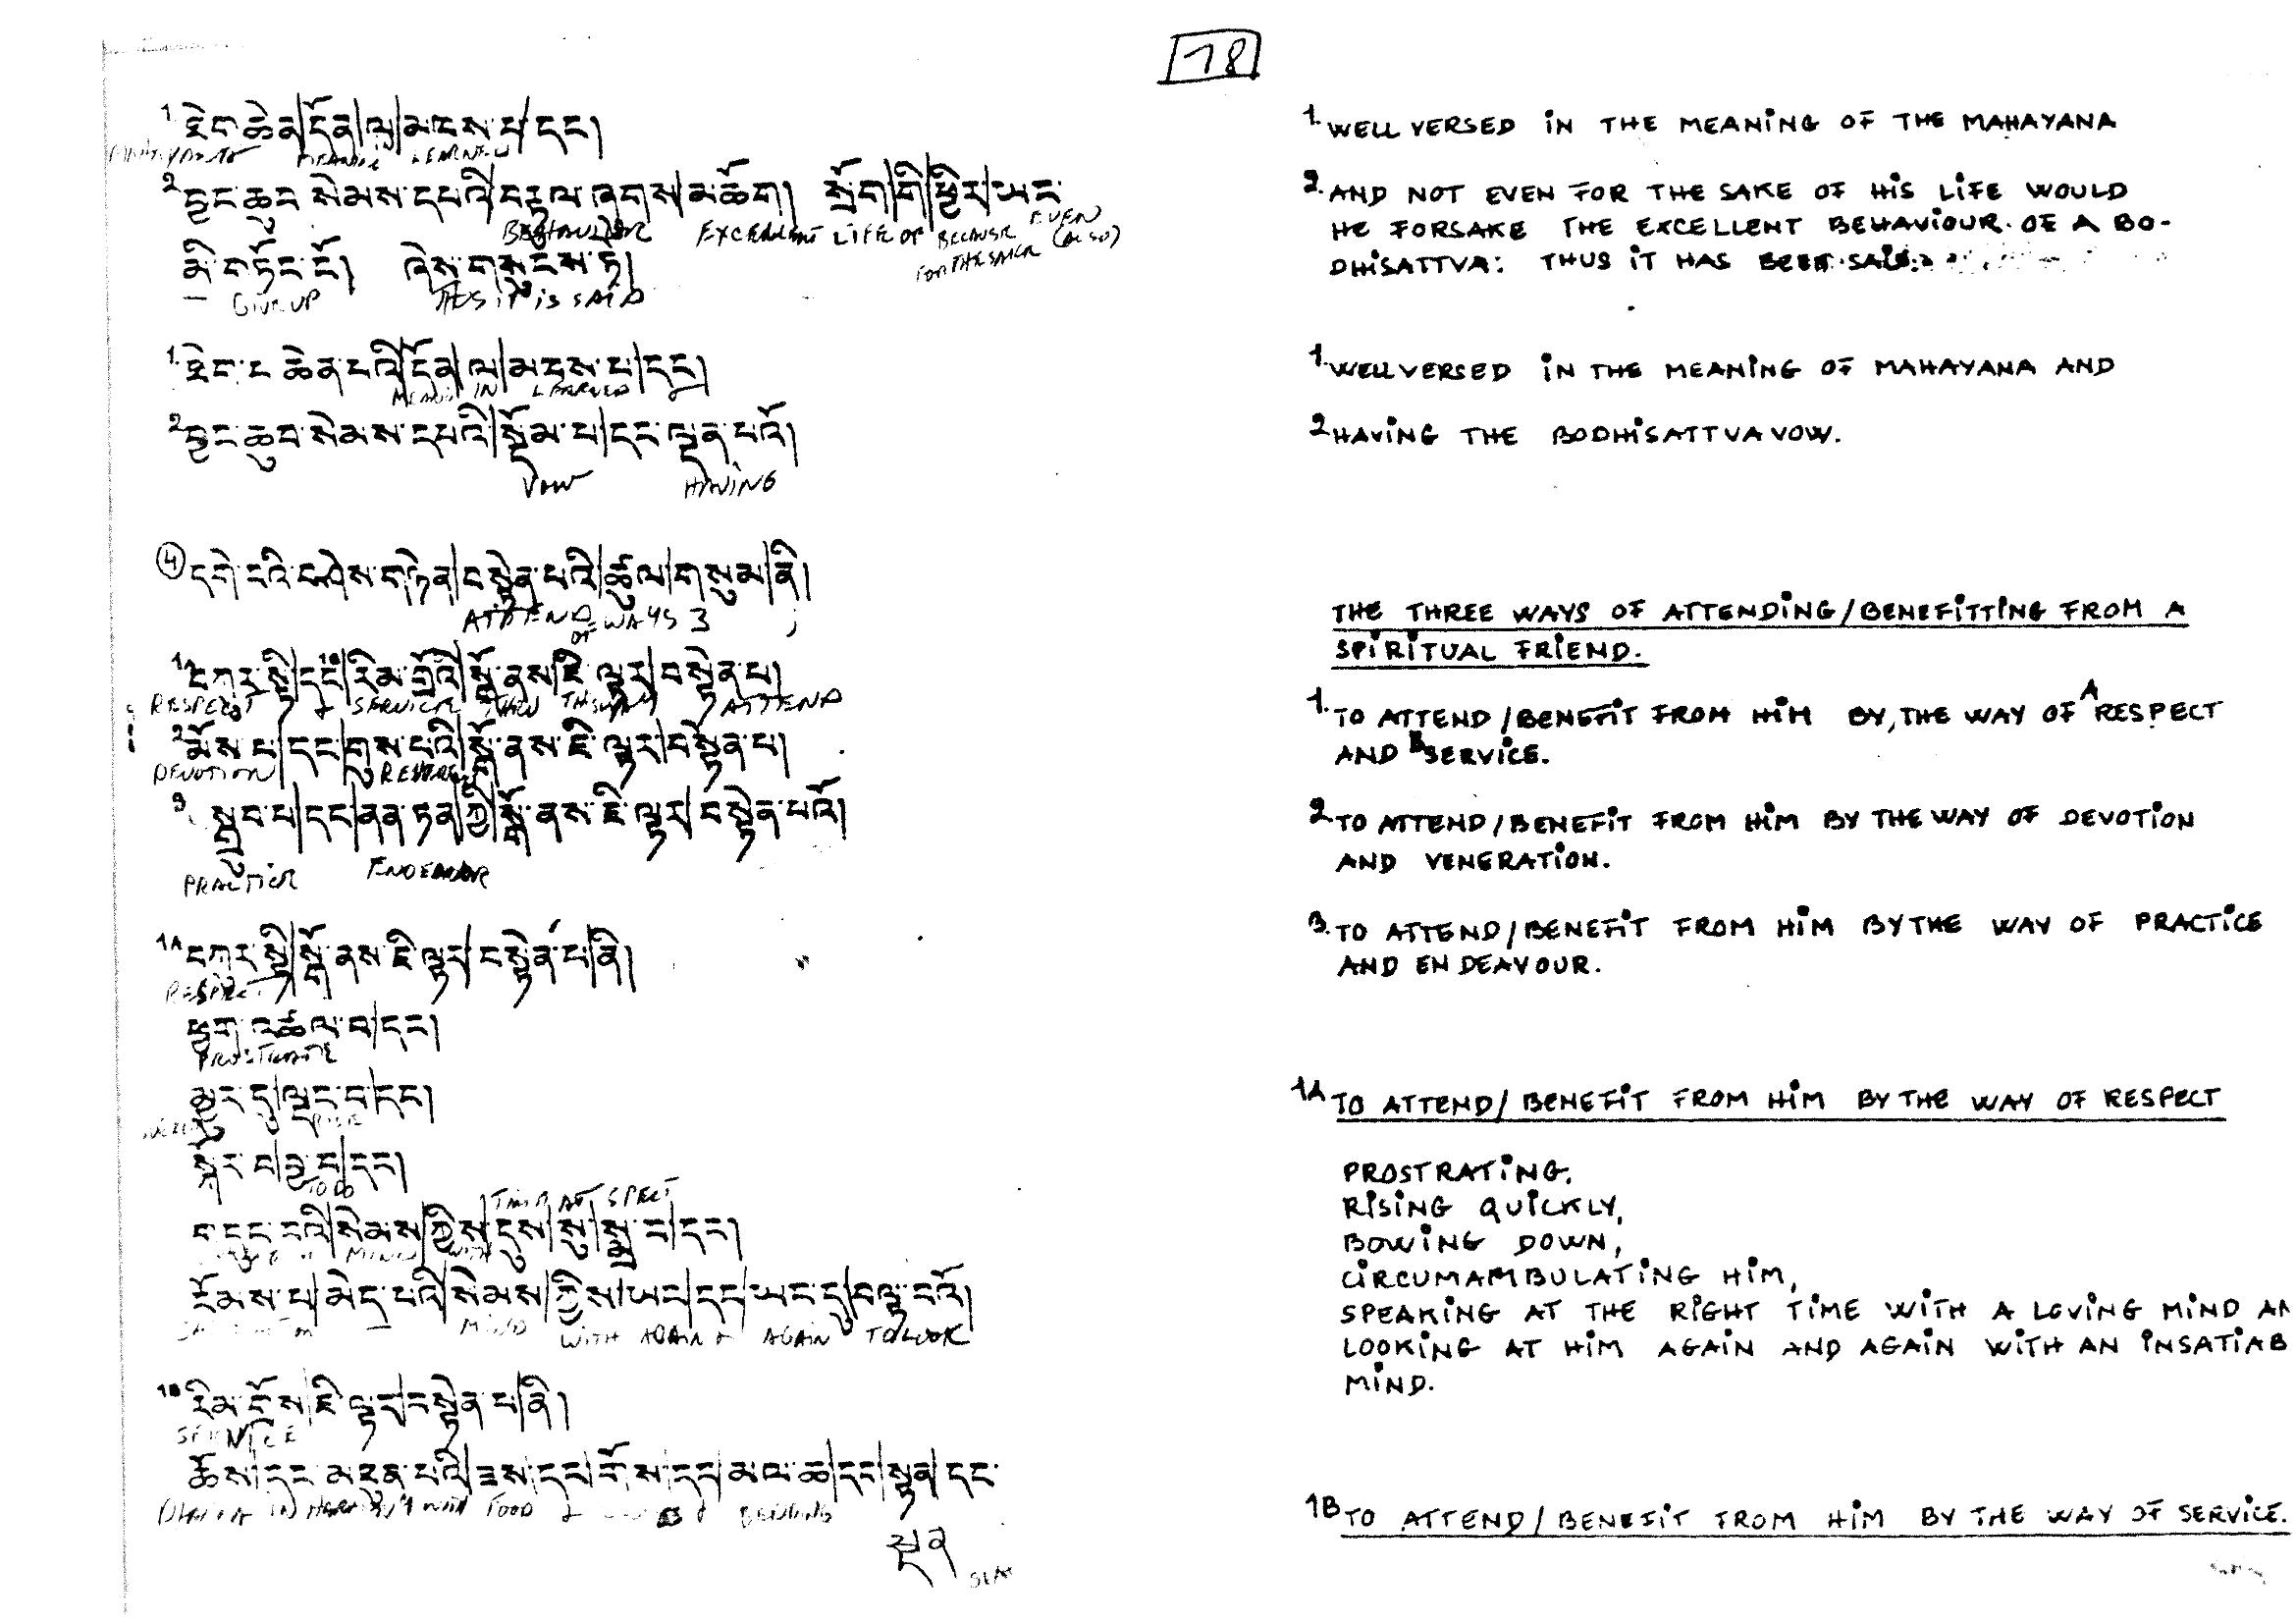 18
1 ཐེག་ཆེན་དོན་ལ་མཁས་པ་དང༌།
MEANING LEARNED
2 བྱང་ཆུབ་སེམས་དཔའི་བརྟུལ་ཞུགས་མཆོག། སྲོག་གི་ཕྱིར་ཡང་
BEHAVIOUR EXCELLENT LIFE OF BECAUSE EVEN
FOR THE SAKE (ALSO)
མི་གཏོང་ངོ༌། ཞེས་གསུངས་ཏེ།
GIVE UP THUS IT IS SAID
1 ཐེག་པ་ཆེན་པའི་དོན་ལ་མཁས་པ་དང༌།
IN LEARNED
2 བྱང་ཆུབ་སེམས་དཔའི་སྡོམ་པ་དང་ལྡན་པའོ།
VOW HAVING
4 དགེ་བའི་བཤེས་གཉེན་བསྟེན་པའི་ཚུལ་གསུམ་ནི།
ATTEND OF WAYS 3
1A བཀུར་སྟི་དང་1B རིམ་གྲོའི་སྒོ་ནས་ཇི་ལྟར་བསྟེན་པ།
RESPECT & SERVICE ATTEND
2 མོས་པ་དང་གུས་པའི་སྒོ་ནས་ཇི་ལྟར་བསྟེན་པ།
DEVOTION
3 སྒྲུབ་པ་དང་ནན་ཏན་གྱི་སྒོ་ནས་ཇི་ལྟར་བསྟེན་པའོ།
PRACTICE ENDEAVOUR
1A བཀུར་སྟི་སྒོ་ནས་ཇི་ལྟར་བསྟེན་པ་ནི།
RESPECT
ཕྱག་འཚལ་བ་དང༌།
PROSTRATE
མྱུར་དུ་ལྡང་བ་དང༌།
RISE
སྐོར་བ་བྱ་བ་དང༌།
TO DO
TIME AT SPEAK
བརྩེ་བའི་སེམས་ཀྱིས་དུས་སུ་སྨྲ་བ་དང༌།
MIND WITH
ངོམས་པ་མེད་པའི་སེམས་ཀྱིས་ཡང་དང་ཡང་དུ་བལྟ་བའོ།
MIND WITH AGAIN & AGAIN TO LOOK
1B རིམ་གྲོས་ཇི་ལྟར་བསྟེན་པ་ནི།
SERVICE
ཆོས་དང་མཐུན་པའི་ཟས་དང་གོས་དང་མལ་ཆ་དང་སྟན་དང་
IN HARMONY WITH FOOD & & BEDDING
1. WELL VERSED IN THE MEANING OF THE MAHAYANA
2. AND NOT EVEN FOR THE SAKE OF HIS LIFE WOULD
HE FORSAKE THE EXCELLENT BEHAVIOUR OF A BO-
DHISATTVA: THUS IT HAS BEEN SAID.
1. WELL VERSED IN THE MEANING OF MAHAYANA AND
2 HAVING THE BODHISATTVA VOW.
THE THREE WAYS OF ATTENDING/BENEFITTING FROM A
SPIRITUAL FRIEND.
1. TO ATTEND/BENEFIT FROM HIM BY, THE WAY OF A RESPECT
AND B SERVICE.
2. TO ATTEND/BENEFIT FROM HIM BY THE WAY OF DEVOTION
AND VENERATION.
3. TO ATTEND/BENEFIT FROM HIM BY THE WAY OF PRACTICE
AND ENDEAVOUR.
1A TO ATTEND/BENEFIT FROM HIM BY THE WAY OF RESPECT
PROSTRATING,
RISING QUICKLY,
BOWING DOWN,
CIRCUMAMBULATING HIM,
SPEAKING AT THE RIGHT TIME WITH A LOVING MIND AN
LOOKING AT HIM AGAIN AND AGAIN WITH AN INSATIAB
MIND.
1B TO ATTEND/BENEFIT FROM HIM BY THE WAY OF SERVICE.